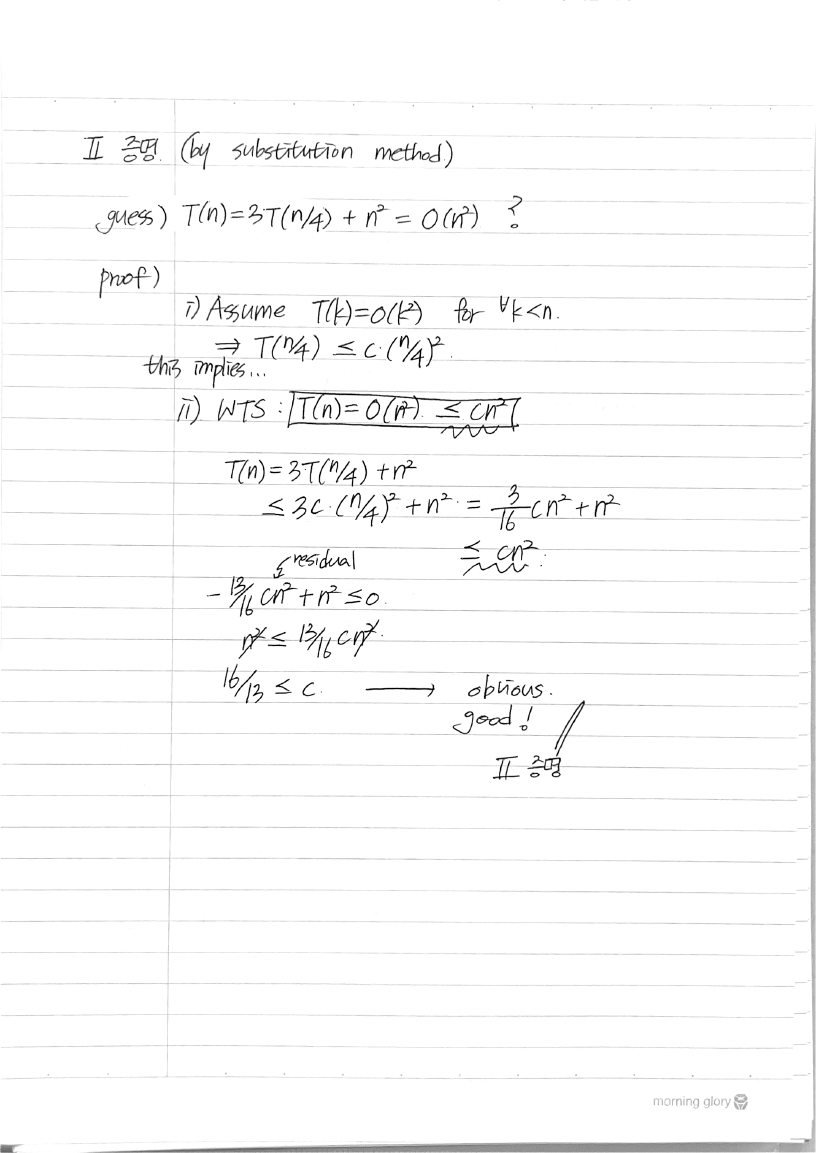 Ⅱ 증명. (by substitution method.)
guess) T(n)=3T(n/4) + n² = O(n²) ?
proof)
i) Assume T(k)=O(k²) for ∀k<n.
⇒ T(n/4) ≤ c·(n/4)².
this implies...
ii) WTS : T(n)=O(n²) ≤ cn²
T(n)=3T(n/4)+n²
≤ 3c·(n/4)²+n² = 3/16 cn²+n²
≤ cn².
residual
-13/16 cn²+n² ≤ 0.
n² ≤ 13/16 cn².
16/13 ≤ c. → obvious.
good!
Ⅱ 증명
morning glory